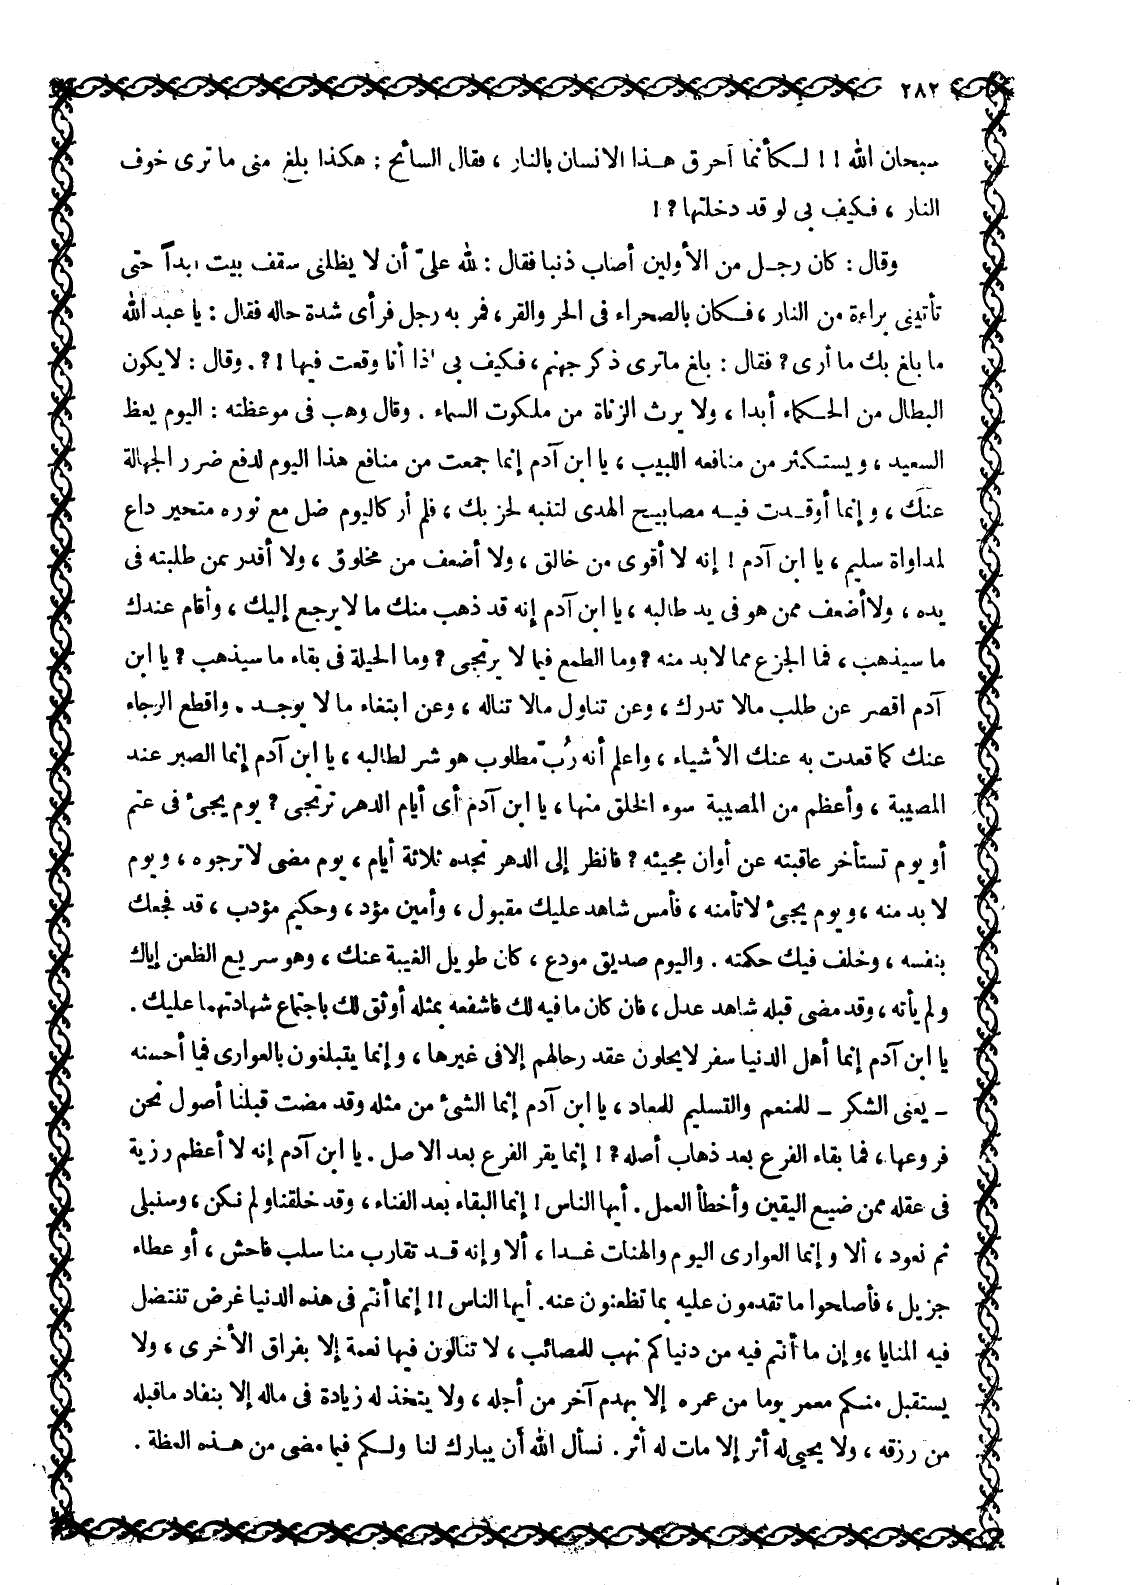 ٢٨٢
سبحان الله !! لكأنما أحرق هذا الانسان بالنار ، فقال السائح : هكذا بلغ منى ما ترى خوف
النار ، فكيف بى لو قد دخلتها ؟ !
وقال : كان رجل من الأولين أصاب ذنبا فقال : لله علىّ أن لا يظلنى سقف بيت أبداً حتى
تأتينى براءة من النار ، فكان بالصحراء فى الحر والقر ، فمر به رجل فرأى شدة حاله فقال : يا عبد الله
ما بلغ بك ما أرى ؟ فقال : بلغ ماترى ذكر جهنم ، فكيف بى إذا أنا وقعت فيها ! ؟ . وقال : لايكون
البطال من الحكماء أبدا ، ولا يرث الزناة من ملكوت السماء . وقال وهب فى موعظته : اليوم يعظ
السعيد ، ويستكثر من منافعه اللبيب ، يا ابن آدم إنما جمعت من منافع هذا اليوم لدفع ضرر الجهالة
عنك ، وإنما أوقدت فيه مصابيح الهدى لتنبه لحزبك ، فلم أر كاليوم ضل مع نوره متحير داع
لمداواة سليم ، يا ابن آدم ! إنه لا أقوى من خالق ، ولا أضعف من مخلوق ، ولا أقدر ممن طلبته فى
يده ، ولاأضعف ممن هو فى يد طالبه ، يا ابن آدم إنه قد ذهب منك ما لايرجع إليك ، وأقام عندك
ما سيذهب ، فما الجزع مما لابد منه ؟ وما الطمع فيما لا يرتجى ؟ وما الحيلة فى بقاء ما سيذهب ؟ يا ابن
آدم اقصر عن طلب مالا تدرك ، وعن تناول مالا تناله ، وعن ابتغاء ما لا يوجد . واقطع الرجاء
عنك كما قعدت به عنك الأشياء ، واعلم أنه رُبّ مطلوب هو شر لطالبه ، يا ابن آدم إنما الصبر عند
المصيبة ، وأعظم من المصيبة سوء الخلق منها ، يا ابن آدم أى أيام الدهر ترتجى ؟ يوم يجىء فى عتم
أو يوم تستأخر عاقبته عن أوان مجيئه ؟ فانظر إلى الدهر تجده ثلاثة أيام ، يوم مضى لاترجوه ، ويوم
لا بد منه ، ويوم يجىء لاتأمنه ، فأمس شاهد عليك مقبول ، وأمين مؤد ، وحكيم مؤدب ، قد فجعك
بنفسه ، وخلف فيك حكمته . واليوم صديق مودع ، كان طويل الغيبة عنك ، وهو سريع الظعن إياك
ولم يأته ، وقد مضى قبله شاهد عدل ، فان كان ما فيه لك فاشفعه بمثله أوثق لك باجتماع شهادتهما عليك .
يا ابن آدم إنما أهل الدنيا سفر لايحلون عقد رحالهم إلافى غيرها ، وإنما يتبلغون بالعوارى فما أحسنه
ـ يعنى الشكر ـ للمنعم والتسليم للمعاد ، يا ابن آدم إنما الشىء من مثله وقد مضت قبلنا أصول نحن
فروعها ، فما بقاء الفرع بعد ذهاب أصله ؟ ! إنما يقر الفرع بعد الاصل . يا ابن آدم إنه لا أعظم رزية
فى عقله ممن ضيع اليقين وأخطأ العمل . أيها الناس ! إنما البقاء بعد الفناء ، وقد خلقناولم نكن ، وسنبلى
ثم نعود ، ألا وإنما العوارى اليوم والهنات غدا ، ألا وإنه قد تقارب منا سلب فاحش ، أو عطاء
جزيل ، فأصلحوا ما تقدمون عليه بما تظعنون عنه . أيها الناس !! إنما أنتم فى هذه الدنيا غرض تنتضل
فيه المنايا ، وإن ما أنتم فيه من دنياكم نهب للمصائب ، لا تنالون فيها نعمة إلا بفراق الأخرى ، ولا
يستقبل منكم معمر يوما من عمره إلا بهدم آخر من أجله ، ولا يتخذ له زيادة فى ماله إلا بنفاد ماقبله
من رزقه ، ولا يحيى له أثر إلا مات له أثر . نسأل الله أن يبارك لنا ولكم فيما مضى من هذه العظة .